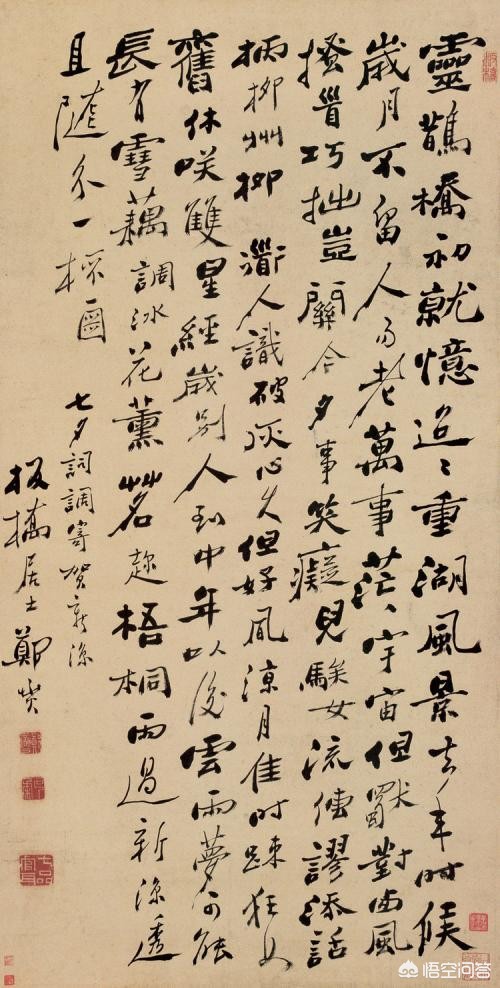 靈鵲橋初就憶迢〻重湖風景去年時候
歲月不留人易老萬事茫〻宇宙但獨對西風
搔首巧拙豈關今夕事笑癡兒騃女流傳謬添話
柄柳州柳衟人識破灰心久但好風涼月佳時疎狂如
舊休咲雙星經歲別人到中年以後雲雨夢可能
長有雪藕調冰花薰茗趁梧桐雨過新涼透
且隨分一杯酉
七夕詞調寄賀新涼
板橋居士鄭燮
七品官耳
悟空问答